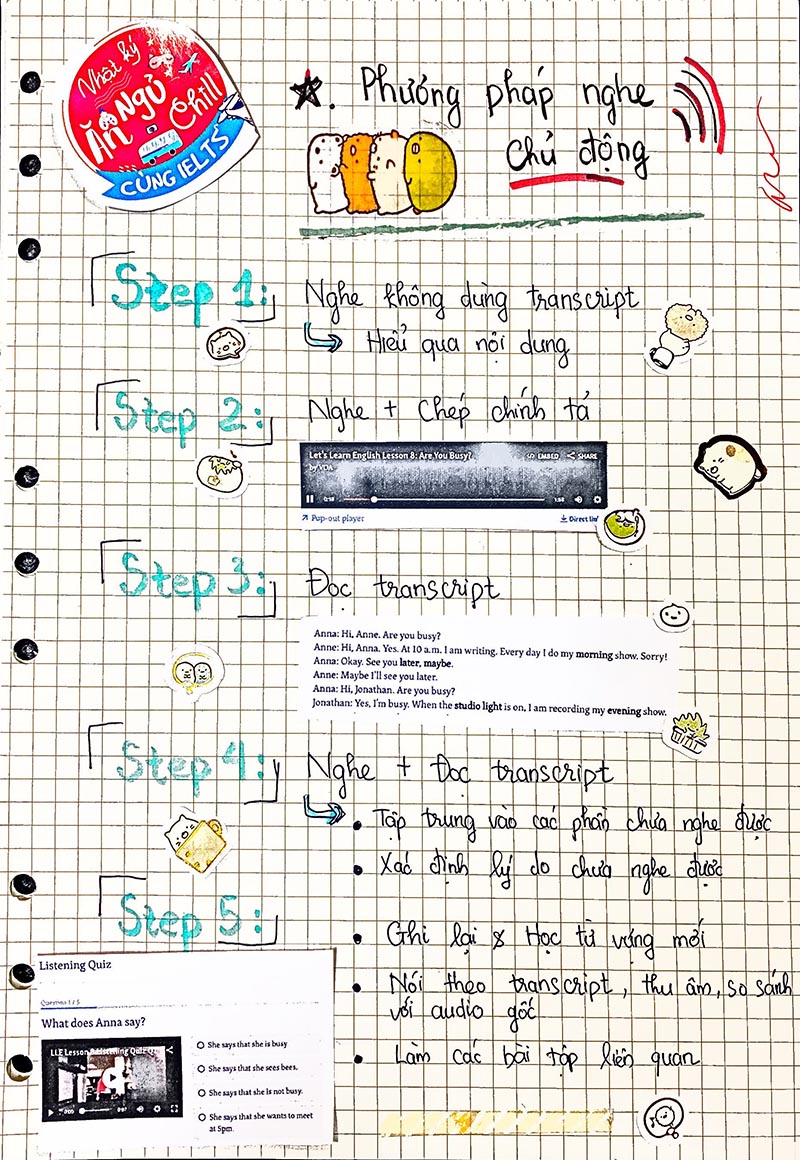 Nhật ký
ĂN NGỦ
Chill
CÙNG IELTS
Phương pháp nghe
chủ động
Step 1:
Nghe không dùng transcript
Hiểu qua nội dung
Step 2:
Nghe + Chép chính tả
Let's Learn English Lesson 8: Are You Busy?
EMBED SHARE
by VOA
0:18
1:58
Pop-out player
Direct lin
Step 3:
Đọc transcript
Anna: Hi, Anne. Are you busy?
Anne: Hi, Anna. Yes. At 10 a.m. I am writing. Every day I do my morning show. Sorry!
Anna: Okay. See you later, maybe.
Anne: Maybe I'll see you later.
Anna: Hi, Jonathan. Are you busy?
Jonathan: Yes, I'm busy. When the studio light is on, I am recording my evening show.
Step 4:
Nghe + Đọc transcript
• Tập trung vào các phần chưa nghe được
• Xác định lý do chưa nghe được
Step 5:
• Ghi lại & Học từ vựng mới
• Nói theo transcript, thu âm, so sánh
với audio gốc
• Làm các bài tập liên quan
Listening Quiz
Question 1 / 5
What does Anna say?
LLE Lesson 8 Listening Quiz Q
She says that she is busy
She says that she sees bees.
She says that she is not busy.
She says that she wants to meet
at 5pm.